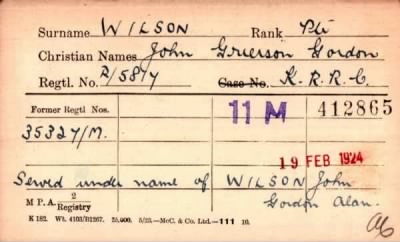 Surname WILSON Rank Pte
Christian Names John Grierson Gordon
Regtl. No. R/5817 Case No. K.R.R.C.
Former Regtl Nos. 11 M 412865
35327/M.
19 FEB 1924
Served under name of WILSON John
Gordon Alan.
M P A. 2 Registry
K 182. Wt. 4103/B1267. 25,000. 5/23.—McC. & Co. Ltd.—111 10.